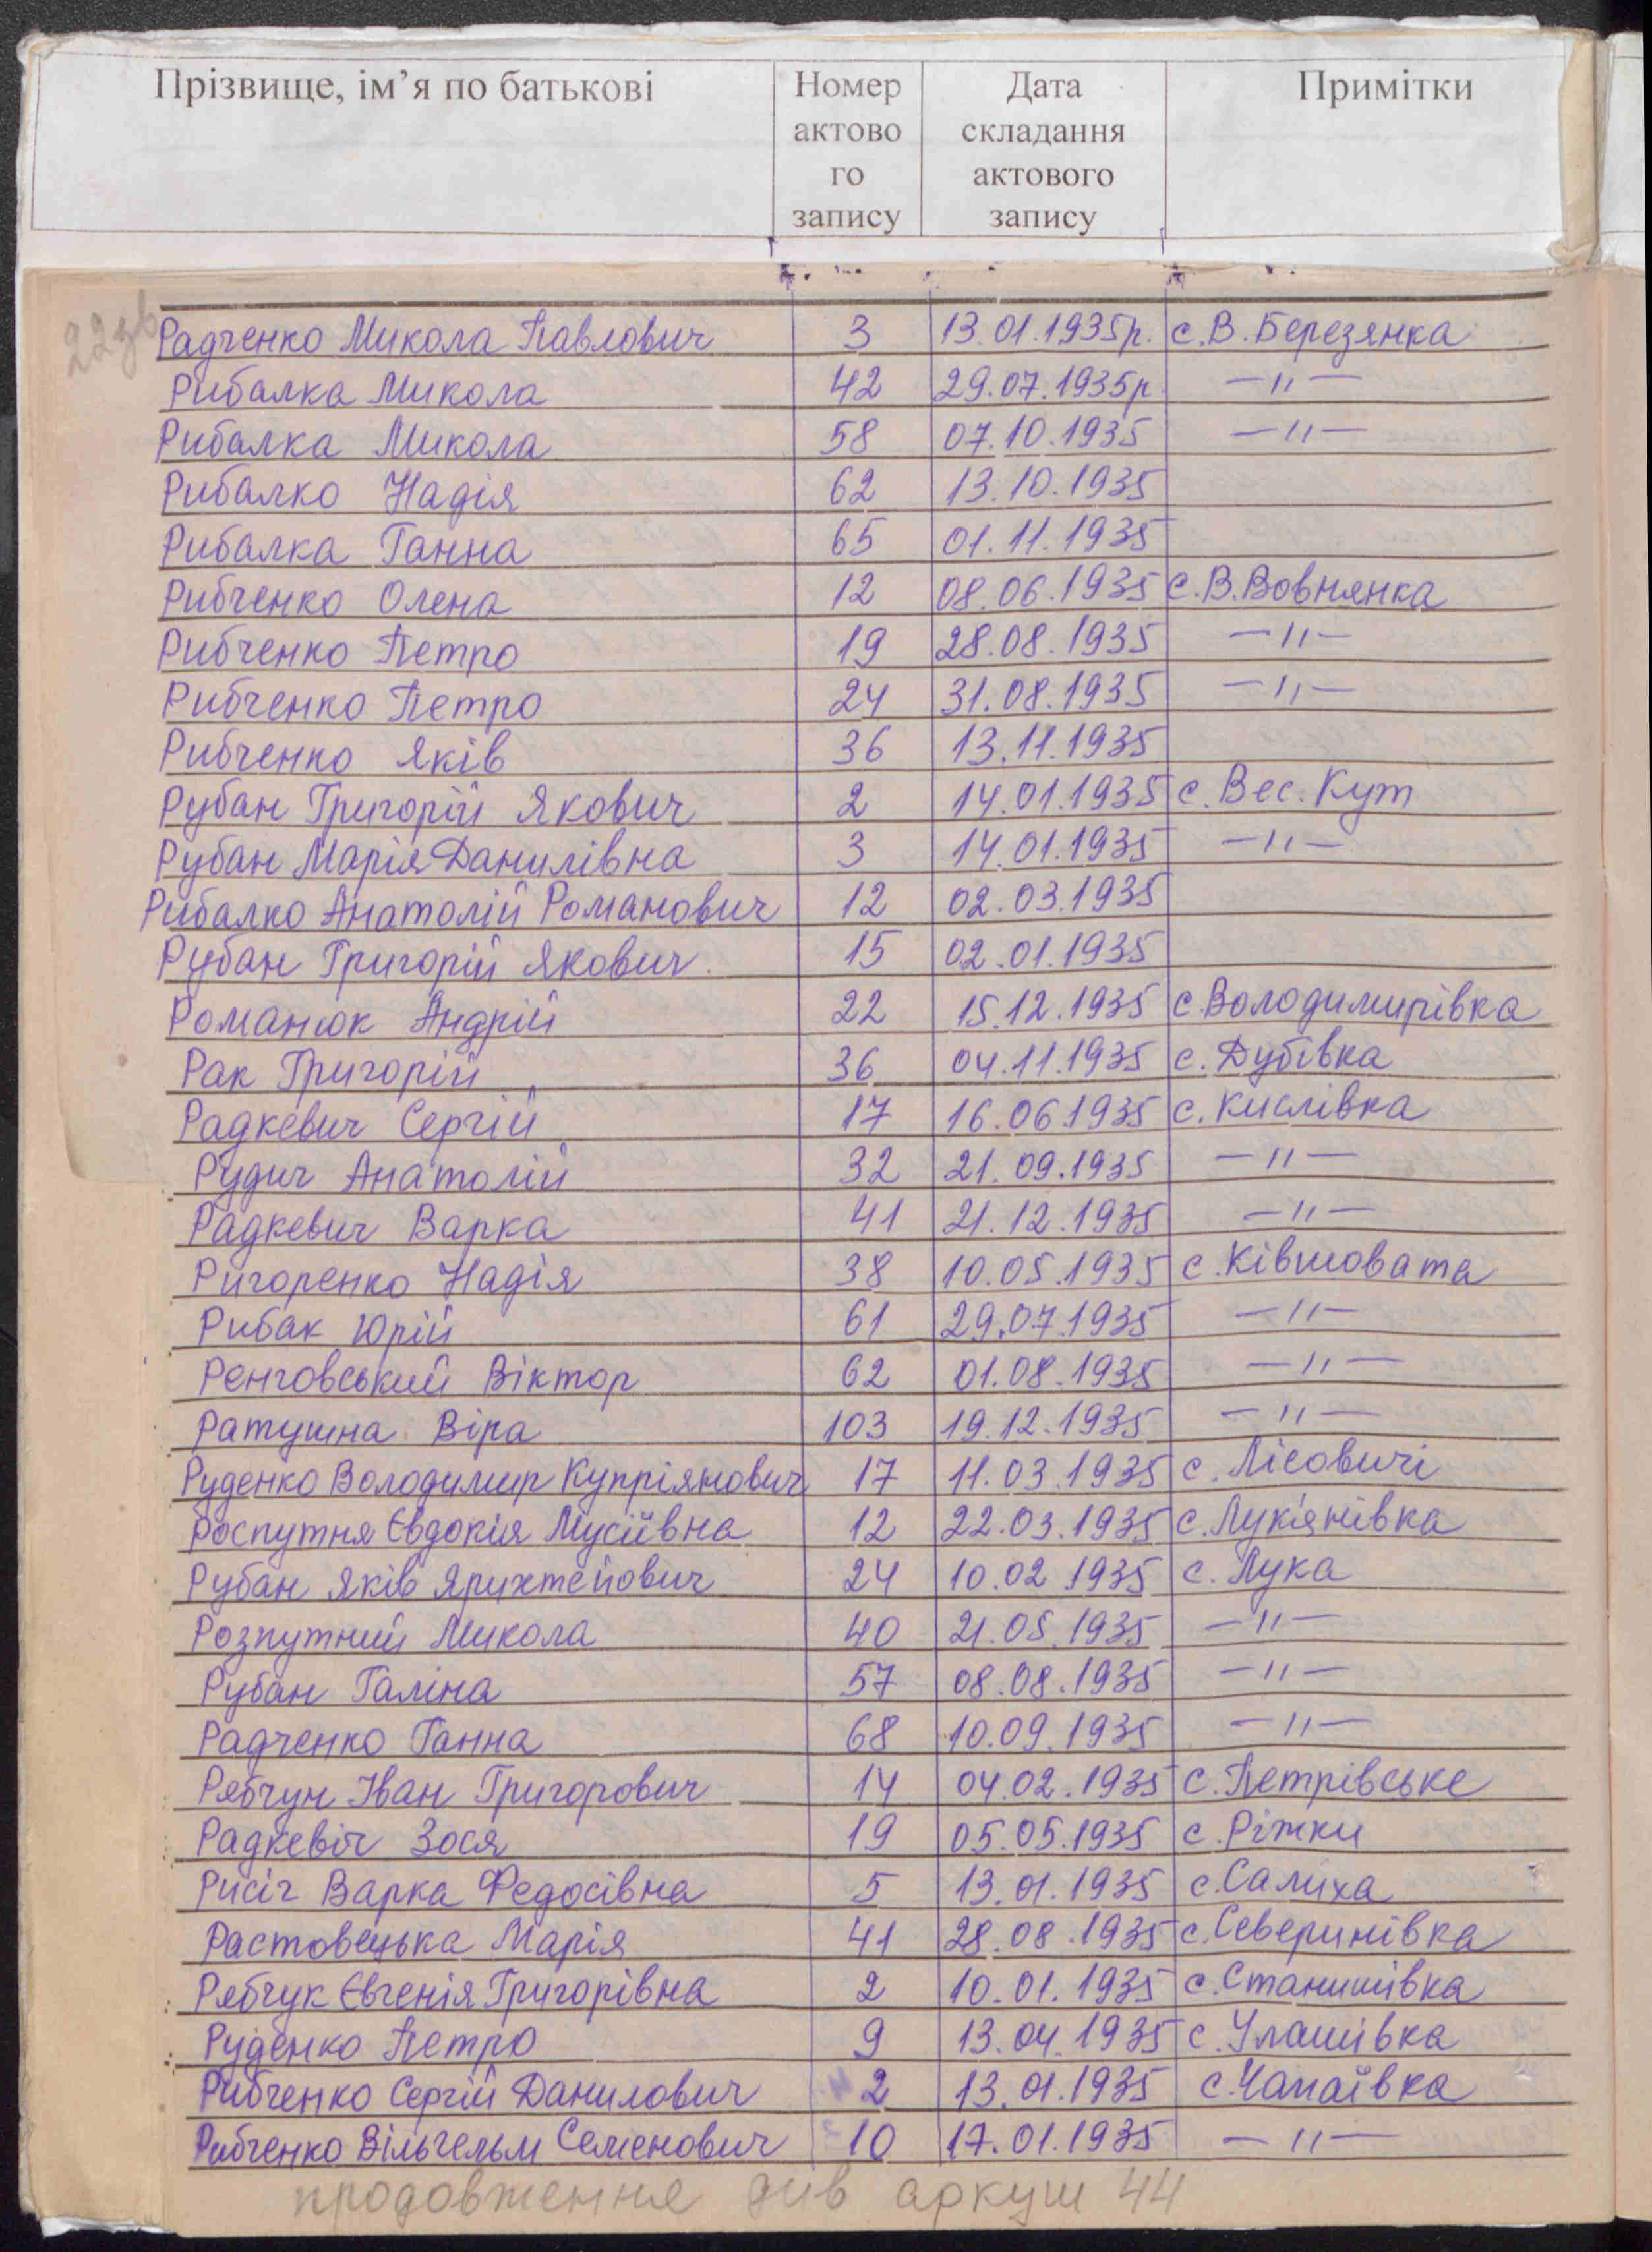 Прізвище, ім’я по батькові Номер актово го запису Дата складання актового запису Примітки
22зв
Радченко Микола Павлович 3 13.01.1935р. с.В.Березянка
Рибалка Микола 42 29.07.1935р. —〃—
Рибалка Микола 58 07.10.1935 —〃—
Рибалко Надія 62 13.10.1935
Рибалка Ганна 65 01.11.1935
Рибченко Олена 12 08.06.1935 с.В.Вовнянка
Рибченко Петро 19 28.08.1935 —〃—
Рибченко Петро 24 31.08.1935 —〃—
Рибченко Яків 36 13.11.1935
Рубан Григорій Якович 2 14.01.1935 с.Вес.Кут
Рубан Марія Данилівна 3 14.01.1935 —〃—
Рибалко Анатолій Романович 12 02.03.1935
Рубан Григорій Якович 15 02.01.1935
Романюк Андрій 22 15.12.1935 с.Володимирівка
Рак Григорій 36 04.11.1935 с.Дубівка
Радкевич Сергій 17 16.06.1935 с.Кислівка
Рудич Анатолій 32 21.09.1935 —〃—
Радкевич Варка 41 21.12.1935 —〃—
Ригоренко Надія 38 10.05.1935 с.Ківшовата
Рибак Юрій 61 29.07.1935 —〃—
Ренговський Віктор 62 01.08.1935 —〃—
Ратушна Віра 103 19.12.1935 —〃—
Руденко Володимир Купріянович 17 11.03.1935 с.Лісовичі
Роспутня Євдокія Мусіївна 12 22.03.1935 с.Лук'янівка
Рубан Яків 24 10.02.1935 с.Лука
Розпутний Микола 40 21.05.1935 —〃—
Рубан Галіна 57 08.08.1935 —〃—
Радченко Ганна 68 10.09.1935 —〃—
Рябчун Іван Григорович 14 04.02.1935 с.Петрівське
Радкевіч Зося 19 05.05.1935 с.Ріжки
Рисіг Варка Федосівна 5 13.01.1935 с.Салиха
Растовецька Марія 41 28.08.1935 с.Северинівка
Рябчук Євгенія Григорівна 2 10.01.1935 с.Станишівка
Руденко Петро 9 13.04.1935 с.Улашівка
Рибченко Сергій Данилович 2 13.01.1935 с.Чапаївка
Рибченко Вільгельм Семенович 10 17.01.1935 —〃—
продовження див аркуш 44